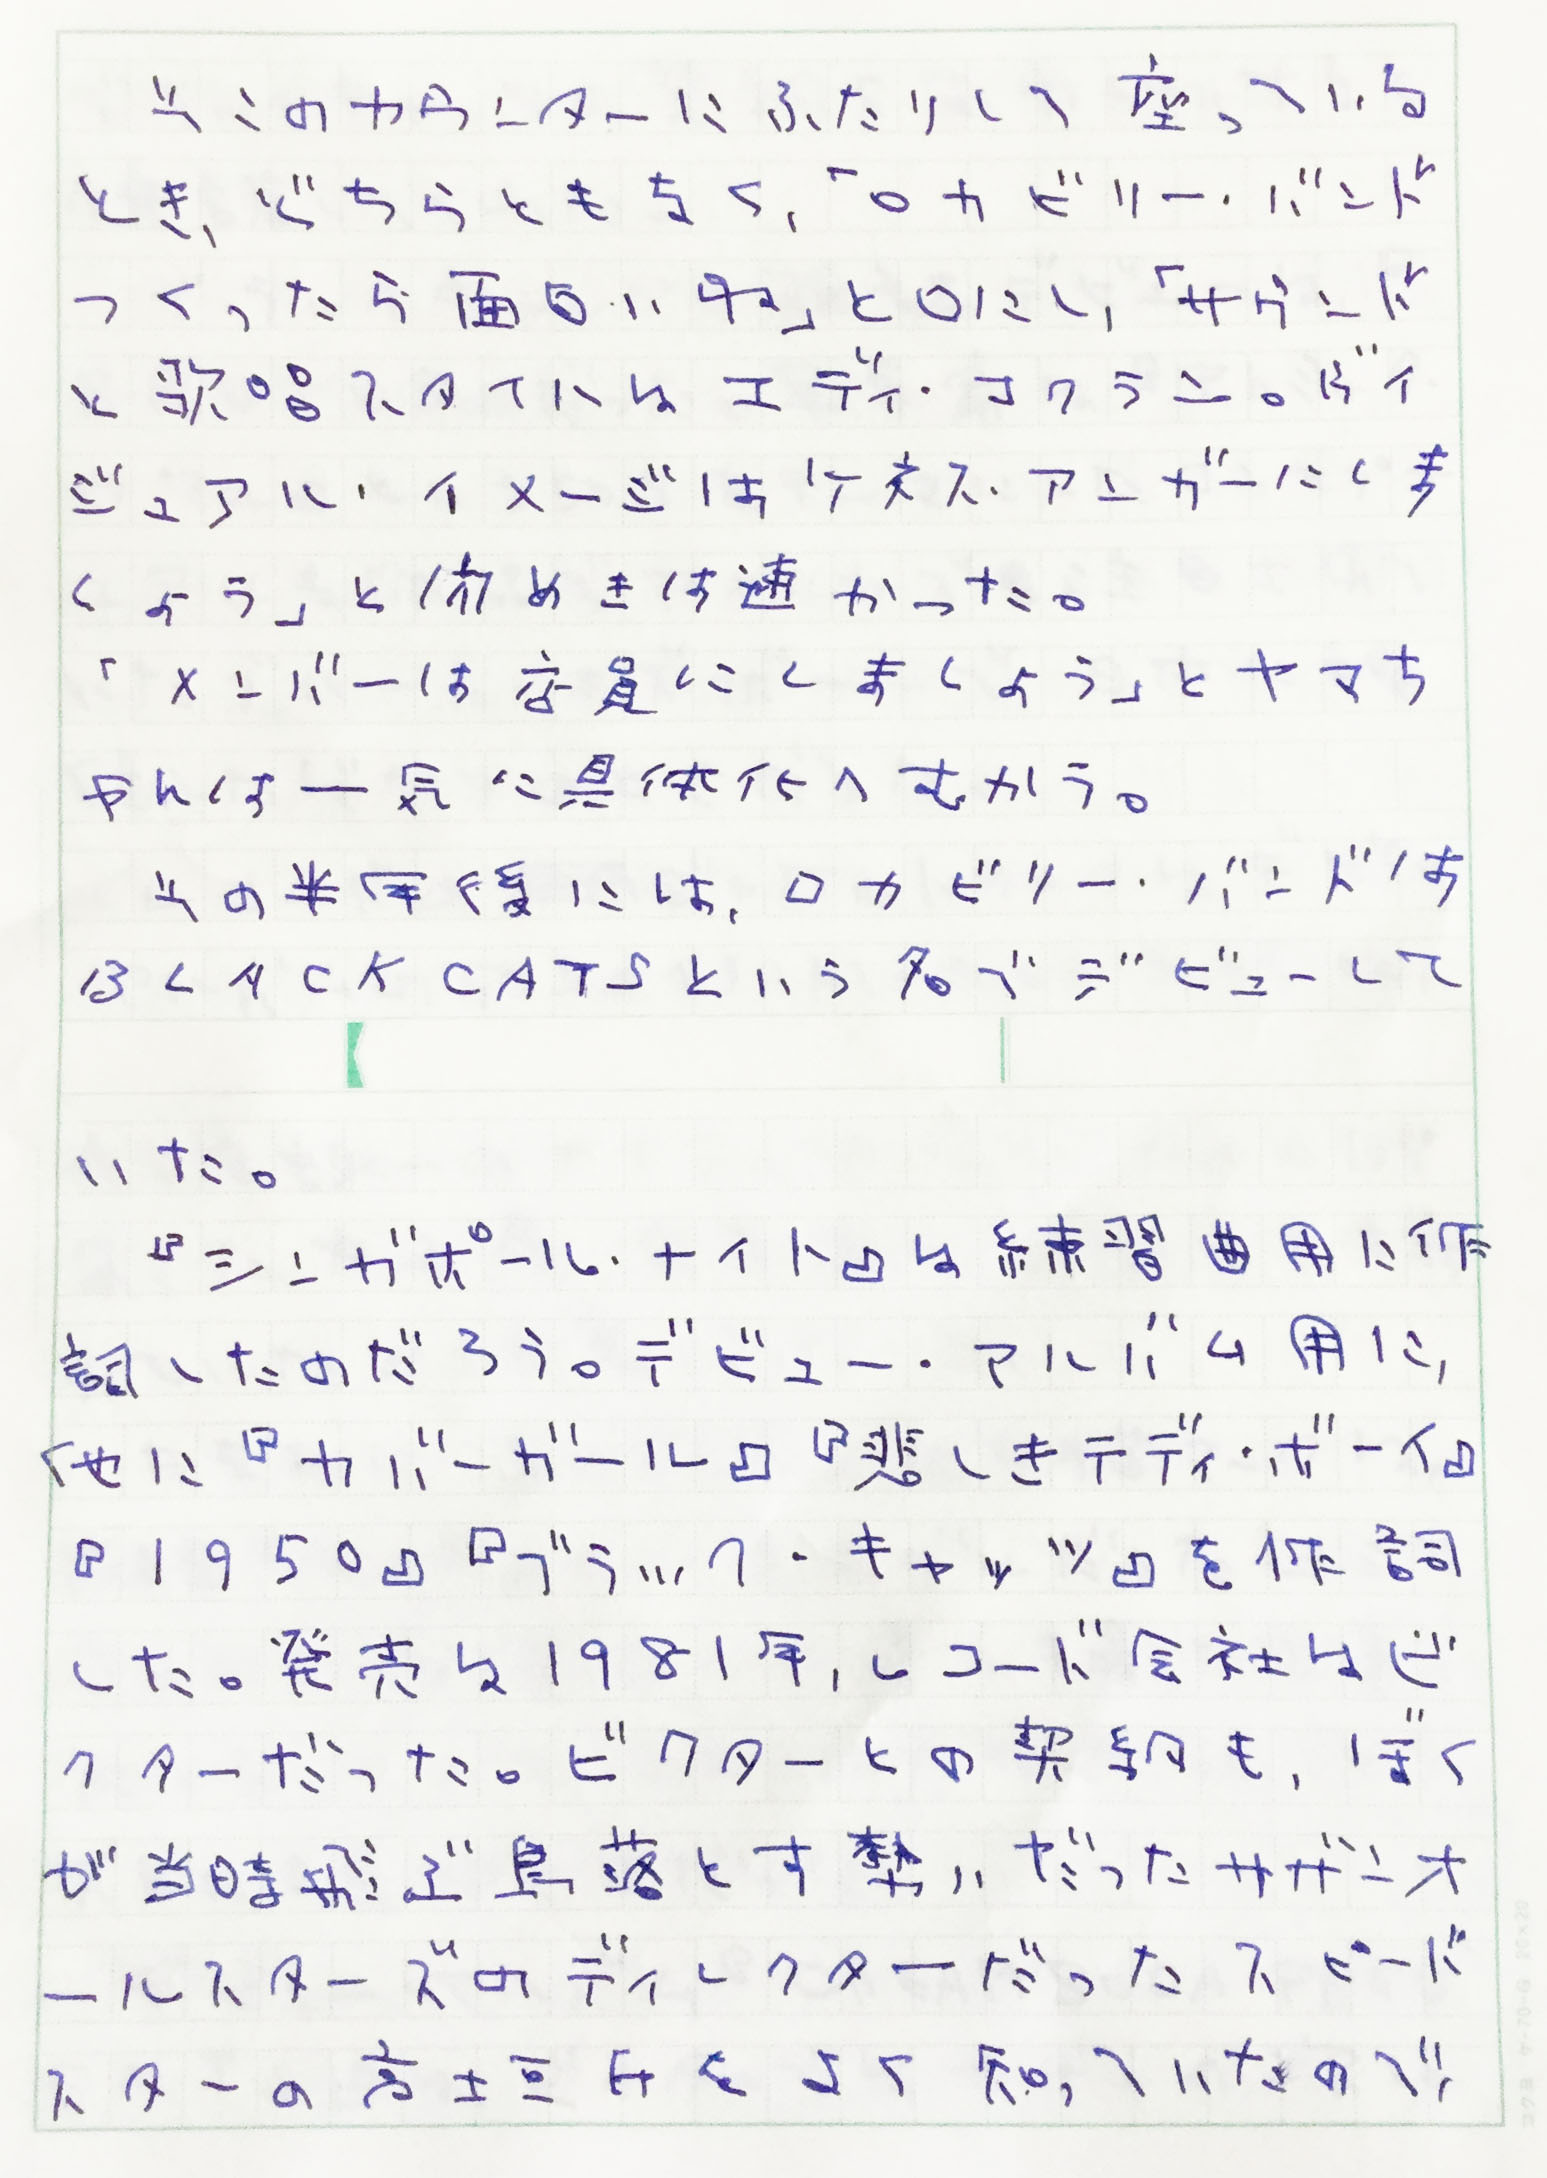 そこのカウンターにふたりして座っている
とき、どちらともなく、「ロカビリー・バンド
つくったら面白いね」と口にし、「サウンド
と歌唱スタイルはエディ・コクラン。ヴィ
ジュアル・イメージはケネス・アンガーにしま
しょう」と決めきは速かった。
「メンバーは店員にしましょう」とヤマち
ゃんは一気に具体化へむかう。
その半年後には、ロカビリー・バンドは
BLACK CATSという名でデビューして
いた。
『シンガポール・ナイト』は練習曲用に作
詞したのだろう。デビュー・アルバム用に、
他に『カバーガール』『悲しきテディ・ボーイ』
『1950』『ブラック・キャッツ』を作詞
した。発売は1981年、レコード会社はビ
クターだった。ビクターとの契約も、ぼく
が当時飛ぶ鳥落とす勢いだったサザンオ
ールスターズのディレクターだったスピード
スターの高垣氏をよく知っていたので、
コクヨ ケ-70-G 20×20